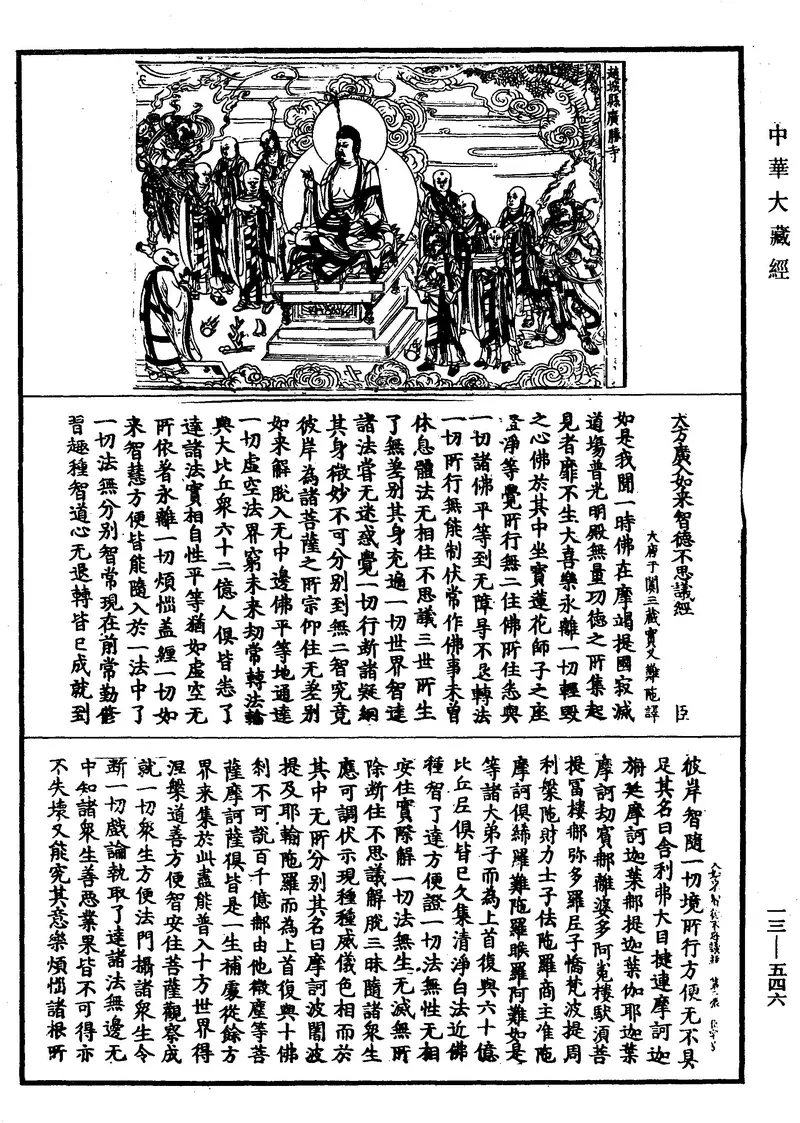 中華大藏經
趙城縣廣勝寺
大方廣入如来智德不思議經
大唐于闐三藏實叉難陁譯
如是我聞一時佛在摩竭提國寂滅
道場普光明殿無量功德之所集起
見者靡不生大喜樂永離一切輕毀
之心佛於其中坐寶蓮花師子之座
證淨等覺所行無二住佛所住悉與
一切諸佛平等到无障导不退轉法
一切所行無能制伏常作佛事未曾
休息體法无相住不思議三世所生
了無差别其身充遍一切世界智達
諸法甞无迷惑覺一切行断諸疑網
其身微妙不可分别到無二智究竟
彼岸為諸菩薩之所宗仰住无差别
如来解脱入无中邊佛平等地通達
一切虚空法界窮未来劫常轉法輪
與大比丘衆六十二億人俱皆悉了
達諸法實相自性平等猶如虚空无
所依著永離一切煩惱盖纏一切如
来智慧方便皆能隨入於一法中了
一切法無分别智常現在前常勤修
習趣種智道心无退轉皆已成就到
彼岸智隨一切境所行方便无不具
足其名曰舍利弗大目揵連摩訶迦
旃延摩訶迦葉那提迦葉伽耶迦葉
摩訶劫賔那離婆多阿㝹樓駄須菩
提冨樓那弥多羅尼子憍梵波提周
利槃陁財力士子佉陁羅商主准陁
摩訶俱絺羅難陁羅睺羅阿難如是
等諸大弟子而為上首復與六十億
比丘尼俱皆已久集清淨白法近佛
種智了達方便證一切法無性无相
安住實際解一切法無生无滅無所
除断住不思議解脱三昧隨諸衆生
應可調伏示現種種威儀色相而於
其中无所分别其名曰摩訶波闍波
提及耶輸陁羅而為上首復與十佛
刹不可說百千億那由他微塵等菩
薩摩訶薩俱皆是一生補處從餘方
界来集於此盡能普入十方世界得
涅槃道善方便智安住菩薩觀察成
就一切衆生方便法門攝諸衆生令
断一切戲論執取了達諸法無邊无
中知諸衆生善惡業果皆不可得亦
不失壞又能究其意樂煩惱諸根所
一三—五四六